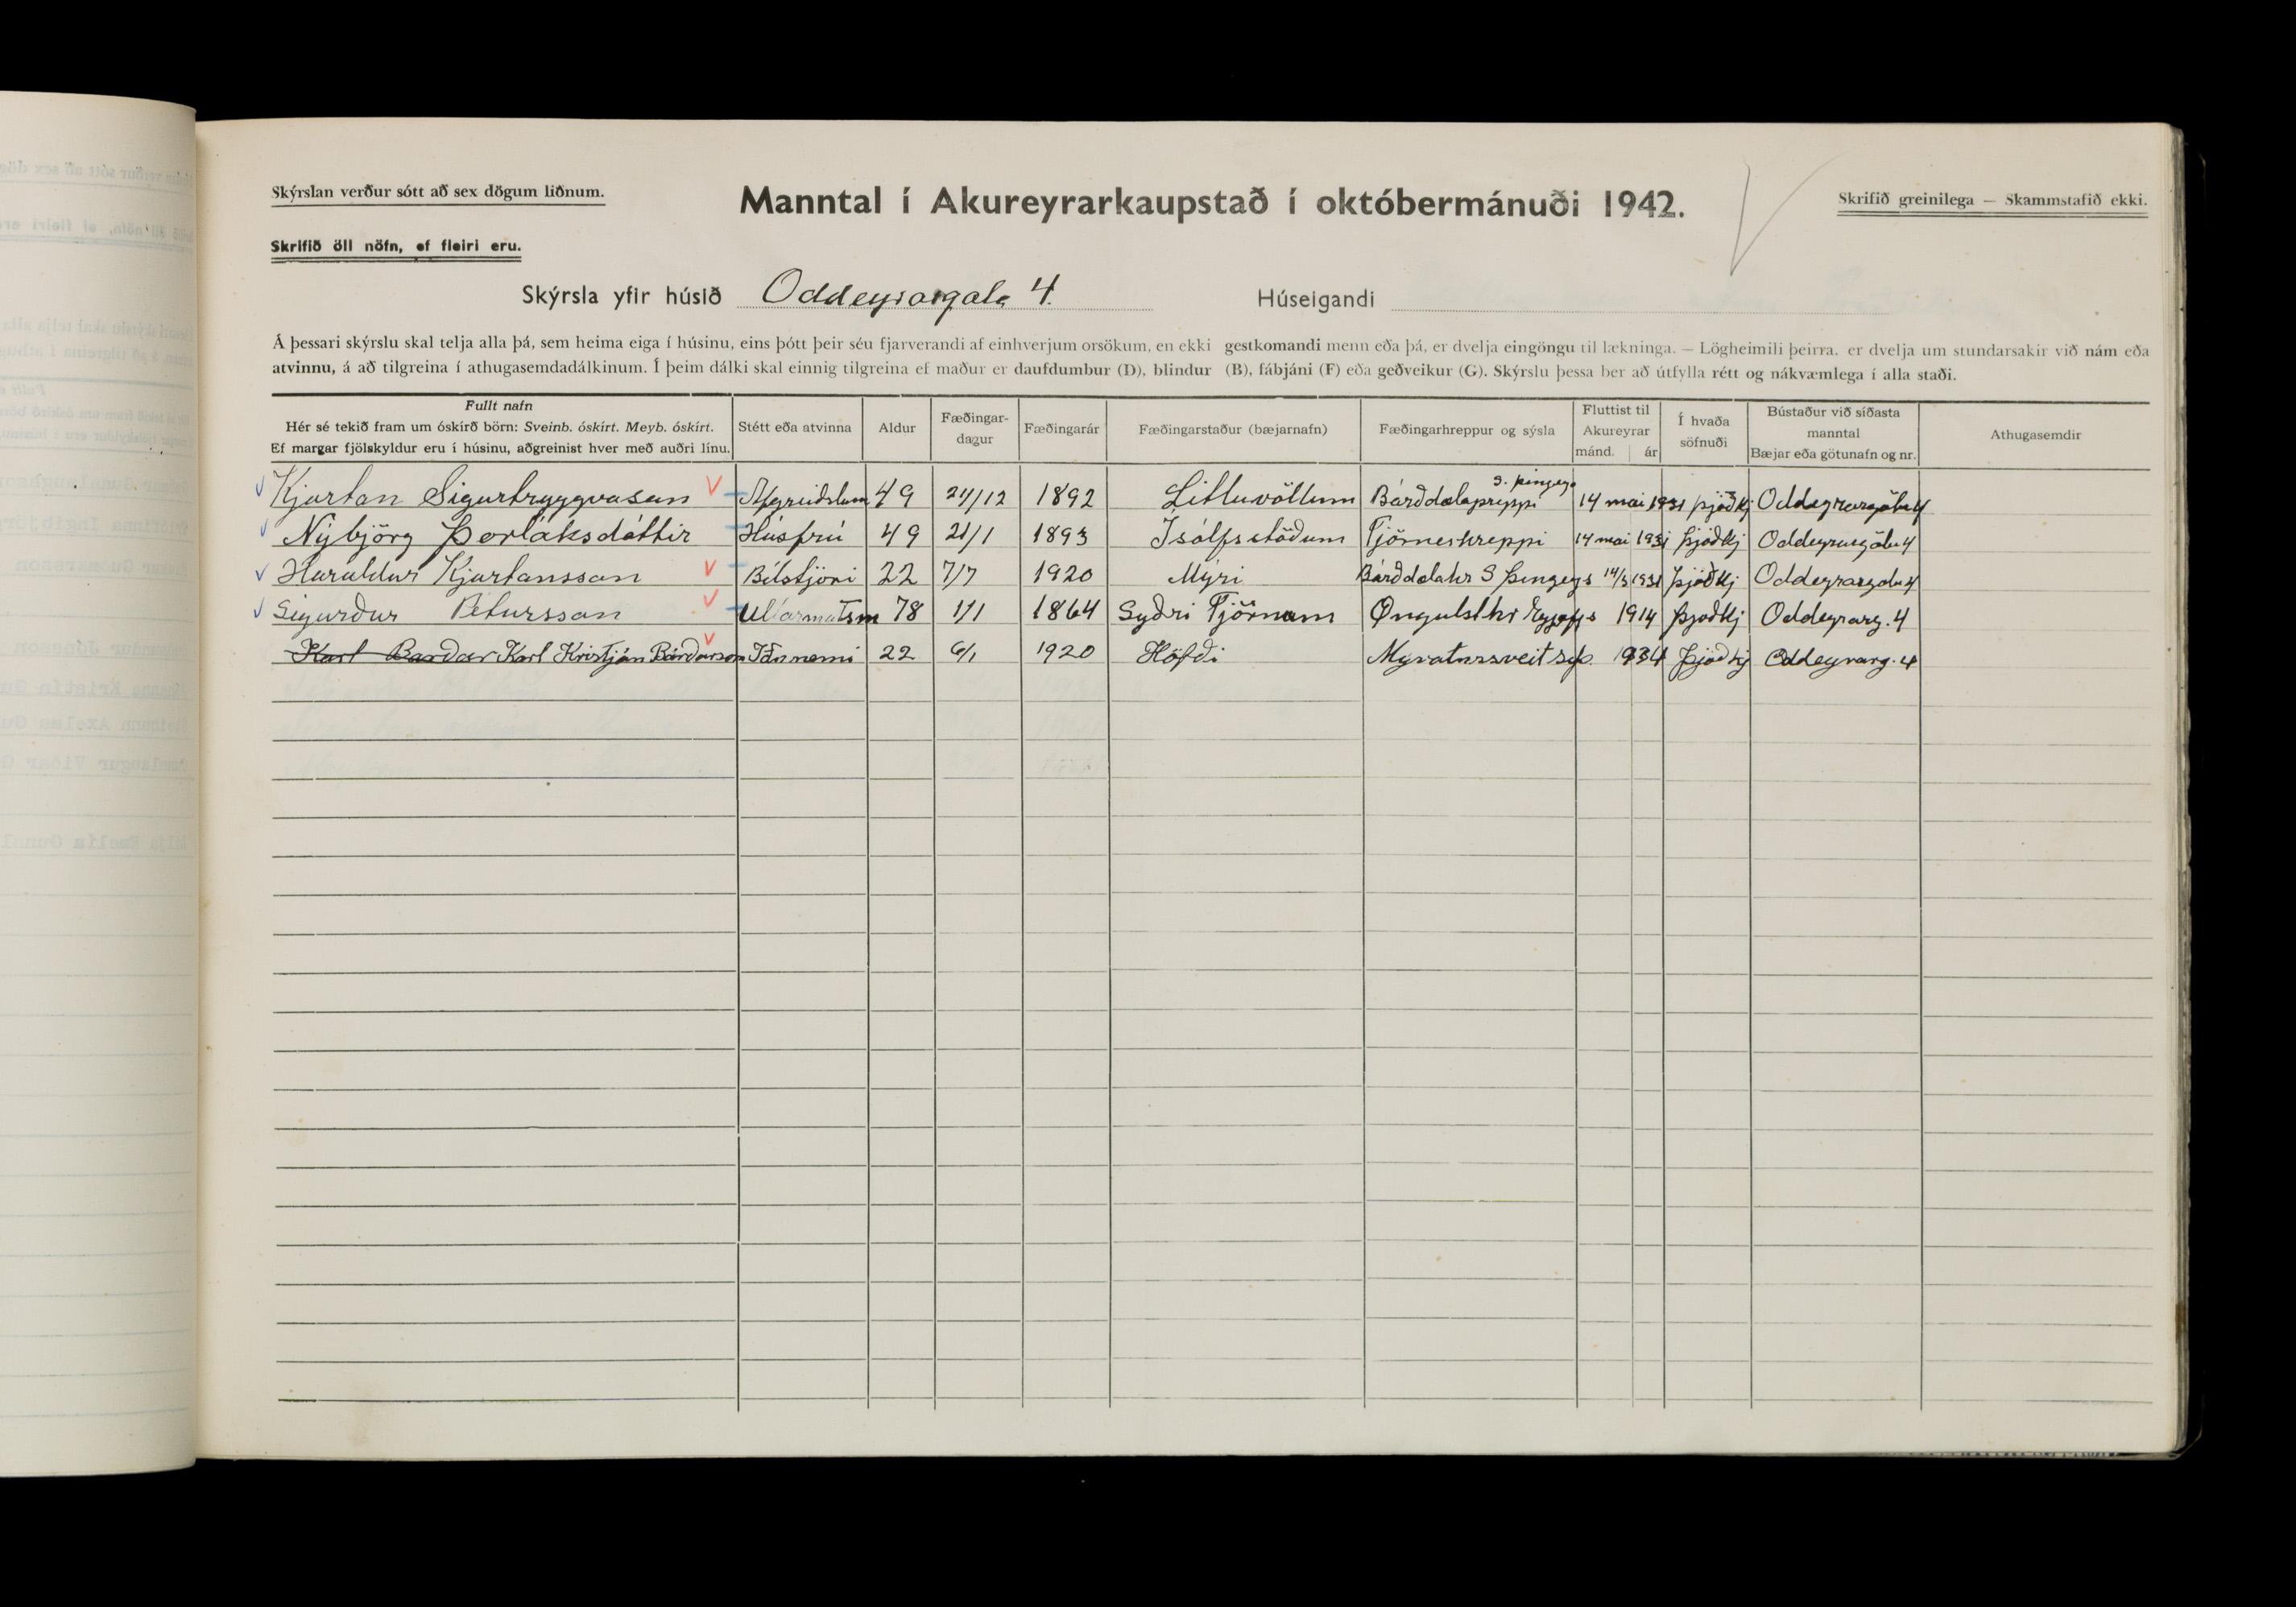 Skýrslan verður sótt að sex dögum liðnum.
Manntal í Akureyrarkaupstað í októbermánuði 1942.
Skrifið greinilega — Skammstafið ekki.
Skrifið öll nöfn, ef fleiri eru.
Skýrsla yfir húsið Oddeyrargata 4. Húseigandi
Á þessari skýrslu skal telja alla þá, sem heima eiga í húsinu, eins þótt þeir séu fjarverandi af einhverjum orsökum, en ekki gestkomandi menn eða þá, er dvelja eingöngu til lækninga. — Lögheimili þeirra. er dvelja um stundarsakir við nám eða
atvinnu, á að tilgreina í athugasemdadálkinum. Í þeim dálki skal einnig tilgreina ef maður er daufdumbur (D), blindur (B), fábjáni (F) eða geðveikur (G). Skýrslu þessa ber að útfylla rétt og nákvæmlega í alla staði.
Fullt nafn
Hér sé tekið fram um óskírð börn: Sveinb. óskírt. Meyb. óskírt.
Ef margar fjölskyldur eru í húsinu, aðgreinist hver með auðri línu.
Stétt eða atvinna
Aldur
Fæðingar-
dagur
Fæðingarár
Fæðingarstaður (bæjarnafn)
Fæðingarhreppur og sýsla
Fluttist til
Akureyrar
mánd. ár
Í hvaða
söfnuði
Bústaður við síðasta
manntal
Bæjar eða götunafn og nr.
Athugasemdir
Kjartan Sigurtryggvason Afgreiðslum 49 24/12 1892 Litluvöllum Bárðdælahreppi S. þingeys 14 mai 1931 þjóðkj Oddeyrargötu 4
Nýbjörg Þorláksdóttir Húsfrú 49 21/1 1893 Ísólfsstöðum Tjörneshreppi 14 mai 1931 þjóðkj Oddeyrargötu 4
Haraldur Kjartansson Bílstjóri 22 7/7 1920 Mýri Bárðdælahr S Þingeys 14/5 1931 þjóðkj Oddeyrargötu 4
Sigurður Pétursson Ullarmatsm 78 1/1 1864 Syðri Tjörnum Öngulsthr Eyjafjs 1914 Þjóðkj Oddeyrarg. 4
Karl Bardar Karl Kristján Bárðarson Iðnnemi 22 6/1 1920 Höfði Mývatnssveit 1934 Þjóðkj Oddeyrarg. 4